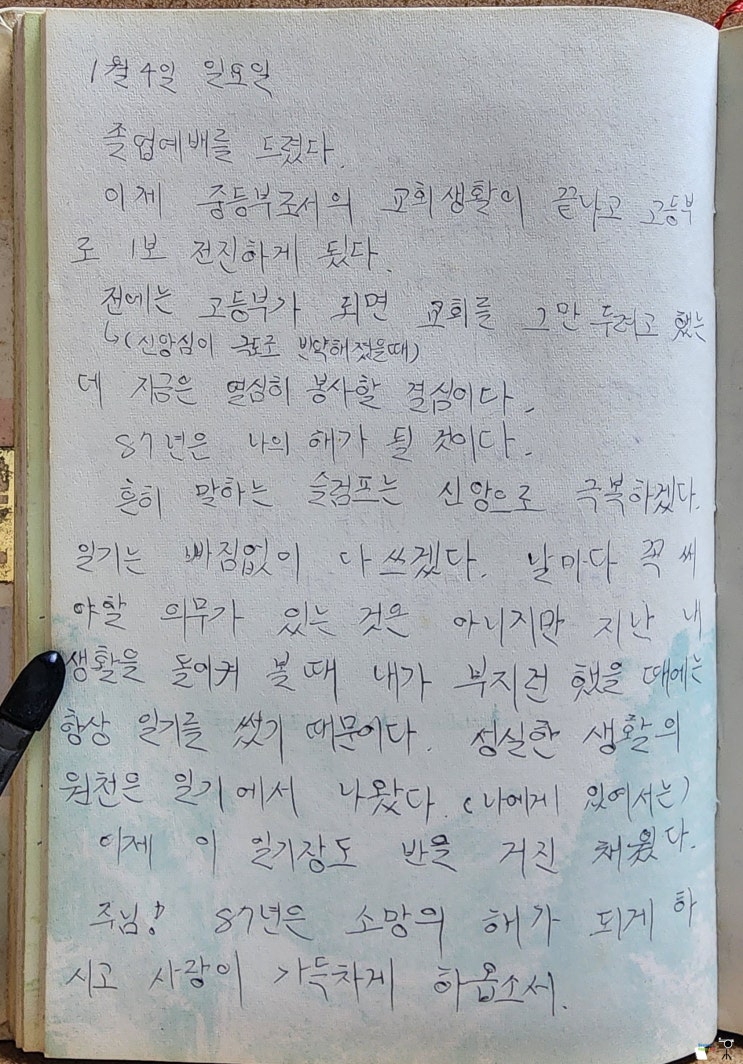 1월 4일 일요일
졸업예배를 드렸다.
이제 중등부로서의 교회생활이 끝나고 고등부
로 1보 전진하게 됬다.
전에는 고등부가 되면 교회를 그만 두려고 했는
↳(신앙심이 극도로 빈약해졌을때)
데 지금은 열심히 봉사할 결심이다.
87년은 나의 해가 될 것이다.
흔히 말하는 슬럼프는 신앙으로 극복하겠다.
일기는 빠짐없이 다 쓰겠다. 날마다 꼭 써
야할 의무가 있는 것은 아니지만 지난 내
생활을 돌이켜 볼 때 내가 부지런 했을 때에는
항상 일기를 썼기 때문이다. 성실한 생활의
원천은 일기에서 나왔다. (나에게 있어서는)
이제 이 일기장도 반을 거진 채웠다.
주님! 87년은 소망의 해가 되게 하
시고 사랑이 가득차게 하옵소서.